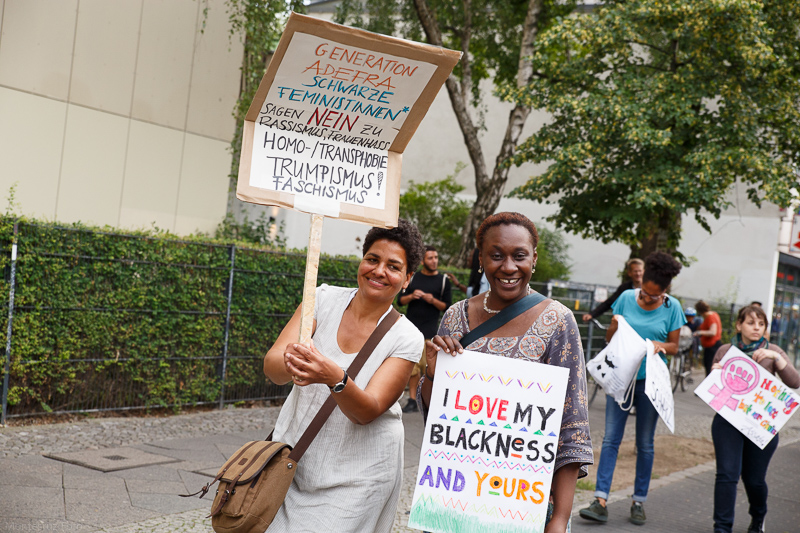 GENERATION
ADEFRA
SCHWARZE
FEMINISTINNEN*
SAGEN NEIN ZU
RASSISMUS, FRAUENHASS
HOMO-/TRANSPHOBIE
TRUMPISMUS!
FASCHISMUS
I LOVE MY
BLACKNESS
AND YOURS
Nothing
to lose
but our